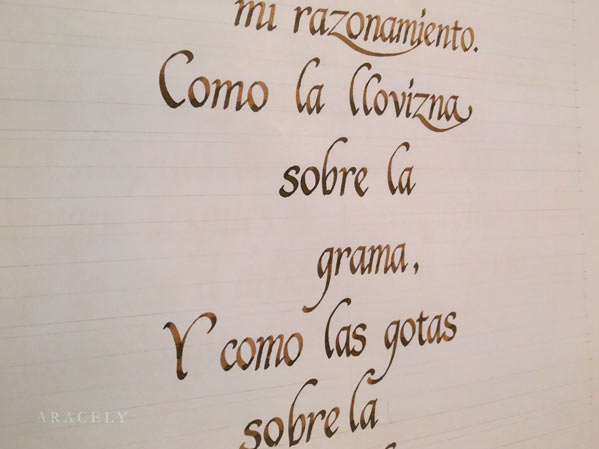 mi razonamiento.
Como la llovizna
sobre la
grama,
Y como las gotas
sobre la
ARACELY